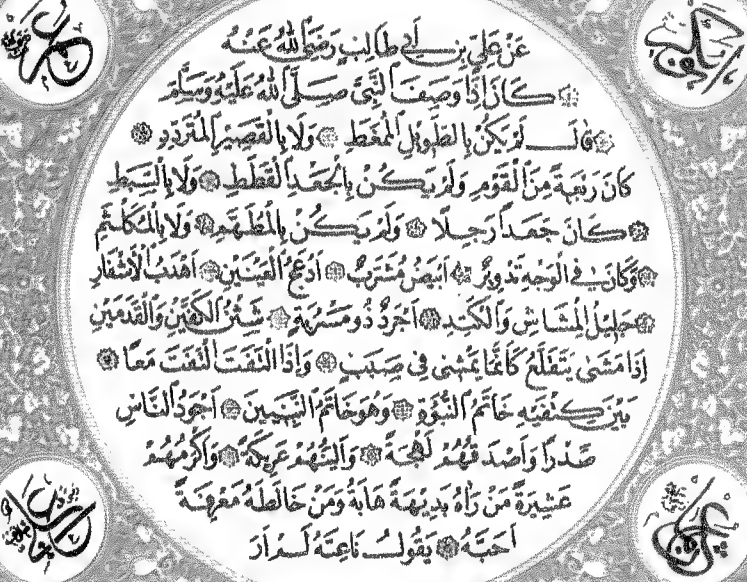 ابوبكر
عمر
عَنْ عَلِيِّ بْنِ أَبِي طَالِبٍ رَضِيَ اللهُ عَنْهُ
كَانَ إِذَا وَصَفَ النَّبِيَّ صَلَّى اللهُ عَلَيْهِ وَسَلَّمَ
قَالَ لَمْ يَكُنْ بِالطَّوِيلِ الْمُمَّغِطِ وَلَا بِالْقَصِيرِ الْمُتَرَدِّدِ
كَانَ رَبْعَةً مِنَ الْقَوْمِ وَلَمْ يَكُنْ بِالْجَعْدِ الْقَطَطِ وَلَا بِالسَّبِطِ
كَانَ جَعْداً رَجِلاً وَلَمْ يَكُنْ بِالْمُطَهَّمِ وَلَا بِالْمُكَلْثَمِ
وَكَانَ فِي الْوَجْهِ تَدْوِيرٌ أَبْيَضُ مُشْرَبٌ أَدْعَجُ الْعَيْنَيْنِ أَهْدَبُ الْأَشْفَارِ
جَلِيلُ الْمُشَاشِ وَالْكَتَدِ أَجْرَدُ ذُو مَسْرُبَةٍ شَثْنُ الْكَفَّيْنِ وَالْقَدَمَيْنِ
إِذَا مَشَى يَتَقَلَّعُ كَأَنَّمَا يَمْشِي فِي صَبَبٍ وَإِذَا الْتَفَتَ الْتَفَتَ مَعًا
بَيْنَ كَتِفَيْهِ خَاتَمُ النُّبُوَّةِ وَهُوَ خَاتَمُ النَّبِيِّينَ أَجْوَدُ النَّاسِ
صَدْرًا وَأَصْدَقُهُمْ لَهْجَةً وَأَلْيَنُهُمْ عَرِيكَةً وَأَكْرَمُهُمْ
عَشِيرَةً مَنْ رَآهُ بَدِيهَةً هَابَهُ وَمَنْ خَالَطَهُ مَعْرِفَةً
أَحَبَّهُ يَقُولُ نَاعِتُهُ لَمْ أَرَ